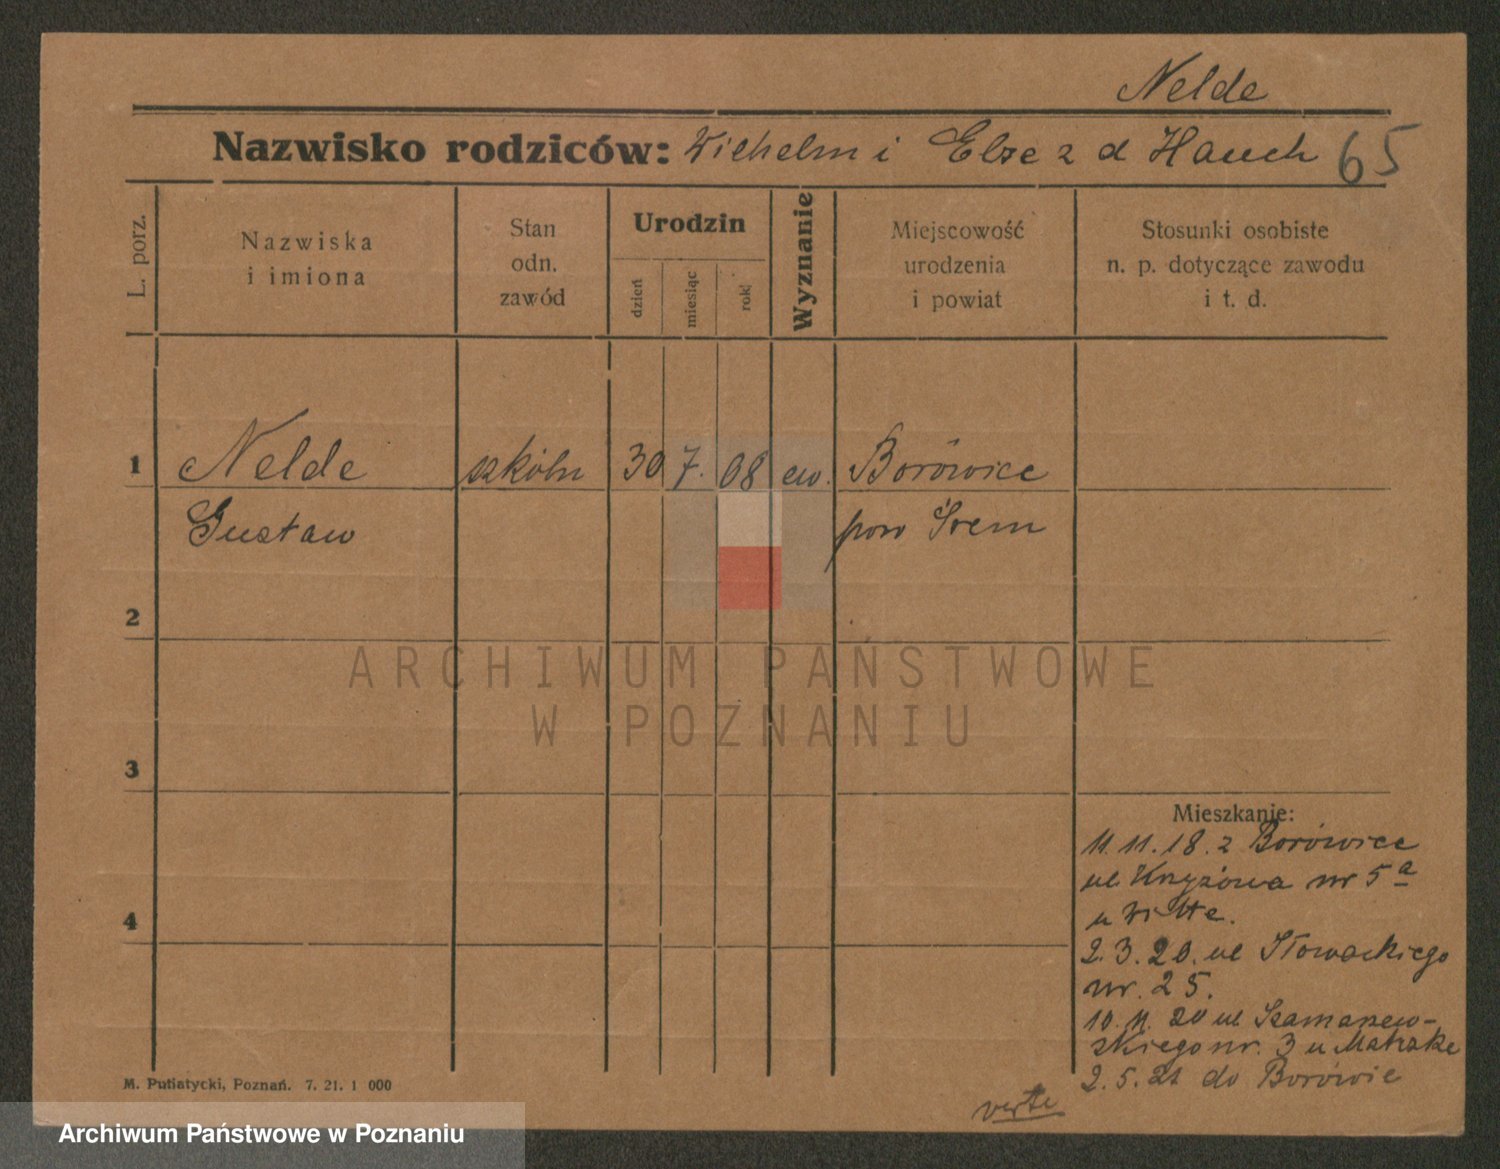 Nelde
Nazwisko rodziców: Wilhelm i Else z d Hauch 65
L. porz.
Nazwiska
i imiona
Stan
odn.
zawód
Urodzin
dzień
miesiąc
rok
Wyznanie
Miejscowość
urodzenia
i powiat
Stosunki osobiste
n. p. dotyczące zawodu
i t. d.
1 Nelde szkóln 30 7. 08 ew. Borówice
Gustaw pow Śrem
2
ARCHIWUM PAŃSTWOWE
W POZNANIU
3
Mieszkanie:
11.11.18. z Borówiec
ul. Knyżowa nr 5a
4
u Witte.
2.3.20. ul Słowackiego
nr. 25.
10.11.20 ul Szamarzew-
skiego nr. 3 u Matzke
2.5.21 do Borówic
M. Putiatycki, Poznań. 7. 21. 1 000
verte
Archiwum Państwowe w Poznaniu